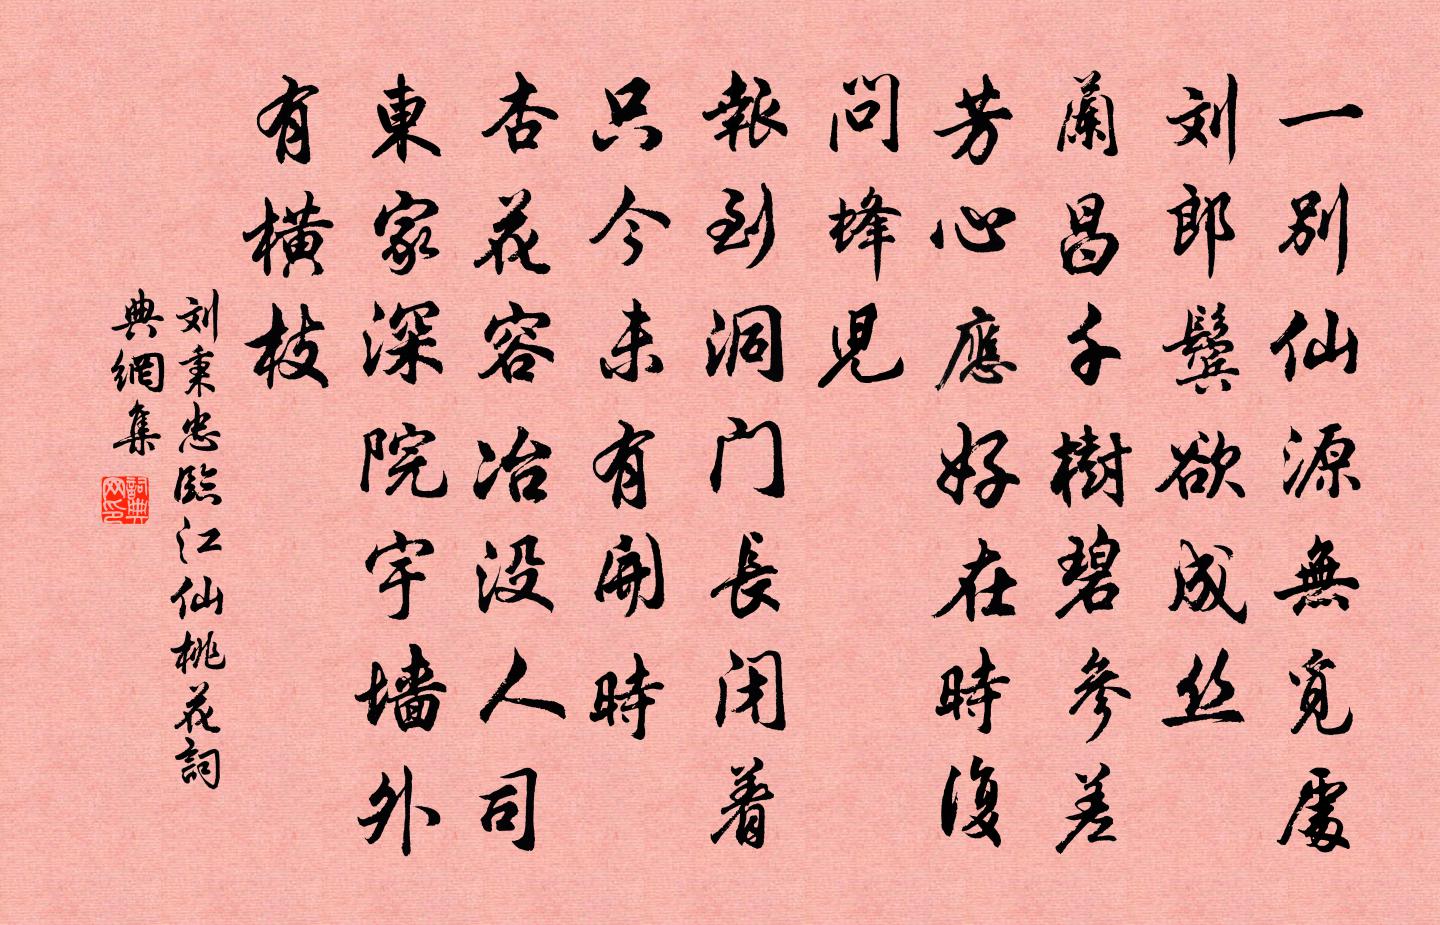 一别仙源無覓處
刘郎鬓欲成丝
蘭昌千樹碧參差
芳心應好在時復
問蜂兒
報到洞门長闭着
只今未有開時
杏花容冶没人司
東家深院宇墙外
有橫枝
刘秉忠臨江仙桃花詞
典網集
詞典网印